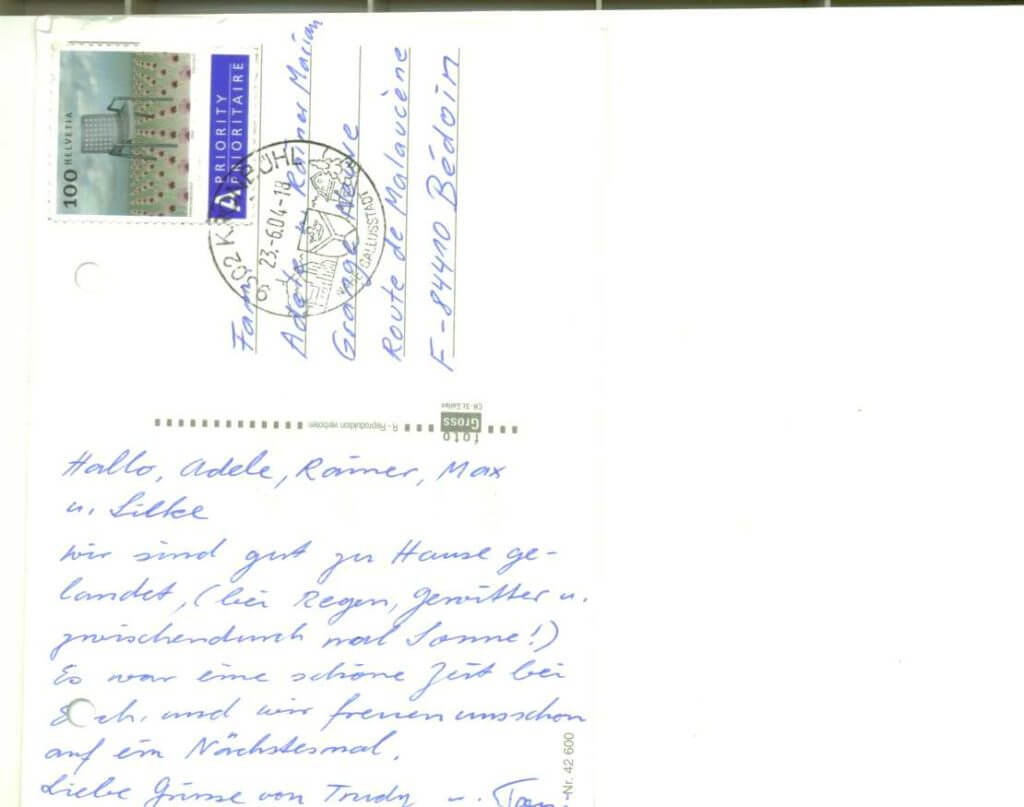 100 HELVETIA
A PRIORITY
PRIORITAIRE
23.-6.04-18
GALLUSSTADT
Fam.
Adele u. Rainer Marian
Grange Neuve
Route de Malaucène
F-84410 Bédoin
foto
Gross
CH-St.Gallen
R - Reproduktion verboten
Hallo, Adele, Rainer, Max
u. Silke
Wir sind gut zu Hause ge-
landet, (bei Regen, Gewitter u.
zwischendurch mal Sonne!)
Es war eine schöne Zeit bei
Euch, und wir freuen uns schon
auf ein Nächstesmal.
Liebe Grüsse von Trudy u.
Nr. 42 600